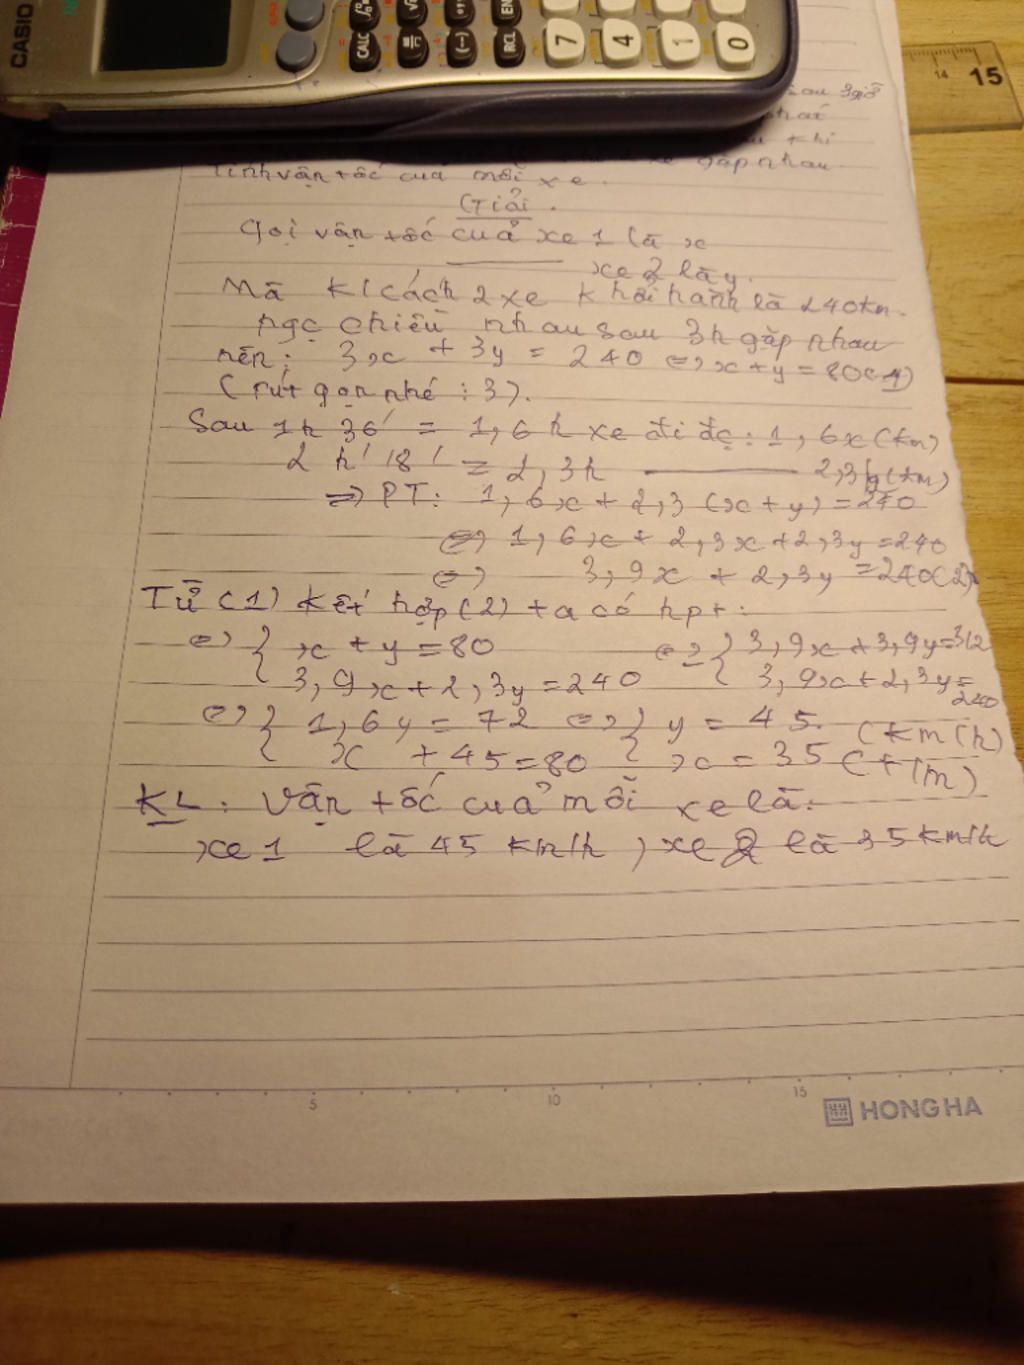 CASIO
CALC
(-)
RCL
EN
7 4 1 0
14 15
sau 3giờ
phát
khi
xe gặp nhau
Tính vận tốc của mỗi xe.
Giải.
Gọi vận tốc cuả xe 1 là x
xe 2 là y.
Mà K/cách 2 xe khởi hành là 240km.
ngc chiều nhau sau 3h gặp nhau
nên: 3x + 3y = 240 <=> x + y = 80 (1)
(rút gọn nhé : 3).
Sau 1h 36' = 1,6h xe đi đc: 1,6x (km)
2h 18' = 2,3h ——— 2,3y (km)
=> PT: 1,6x + 2,3 (x + y) = 240
<=> 1,6x + 2,3x + 2,3y = 240
<=> 3,9x + 2,3y = 240 (2)
Từ (1) kết hợp (2) ta có hpt:
<=> { x + y = 80 <=> { 3,9x + 3,9y = 312
3,9x + 2,3y = 240 3,9x + 2,3y = 240
<=> { 1,6y = 72 <=> { y = 45 (km/h)
x + 45 = 80 x = 35 (t/m)
KL: Vận tốc cuả mỗi xe là:
xe 1 là 45 km/h, xe 2 là 35 km/h
5 10 15
HONG HA